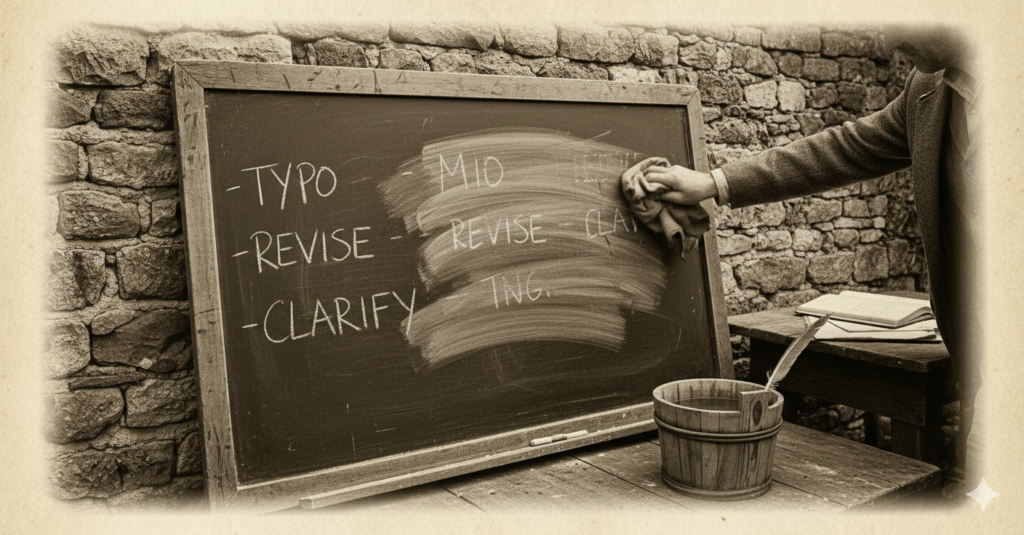 -TYPO - MIO
-REVISE - REVISE - CLA
-CLARIFY - TNG.